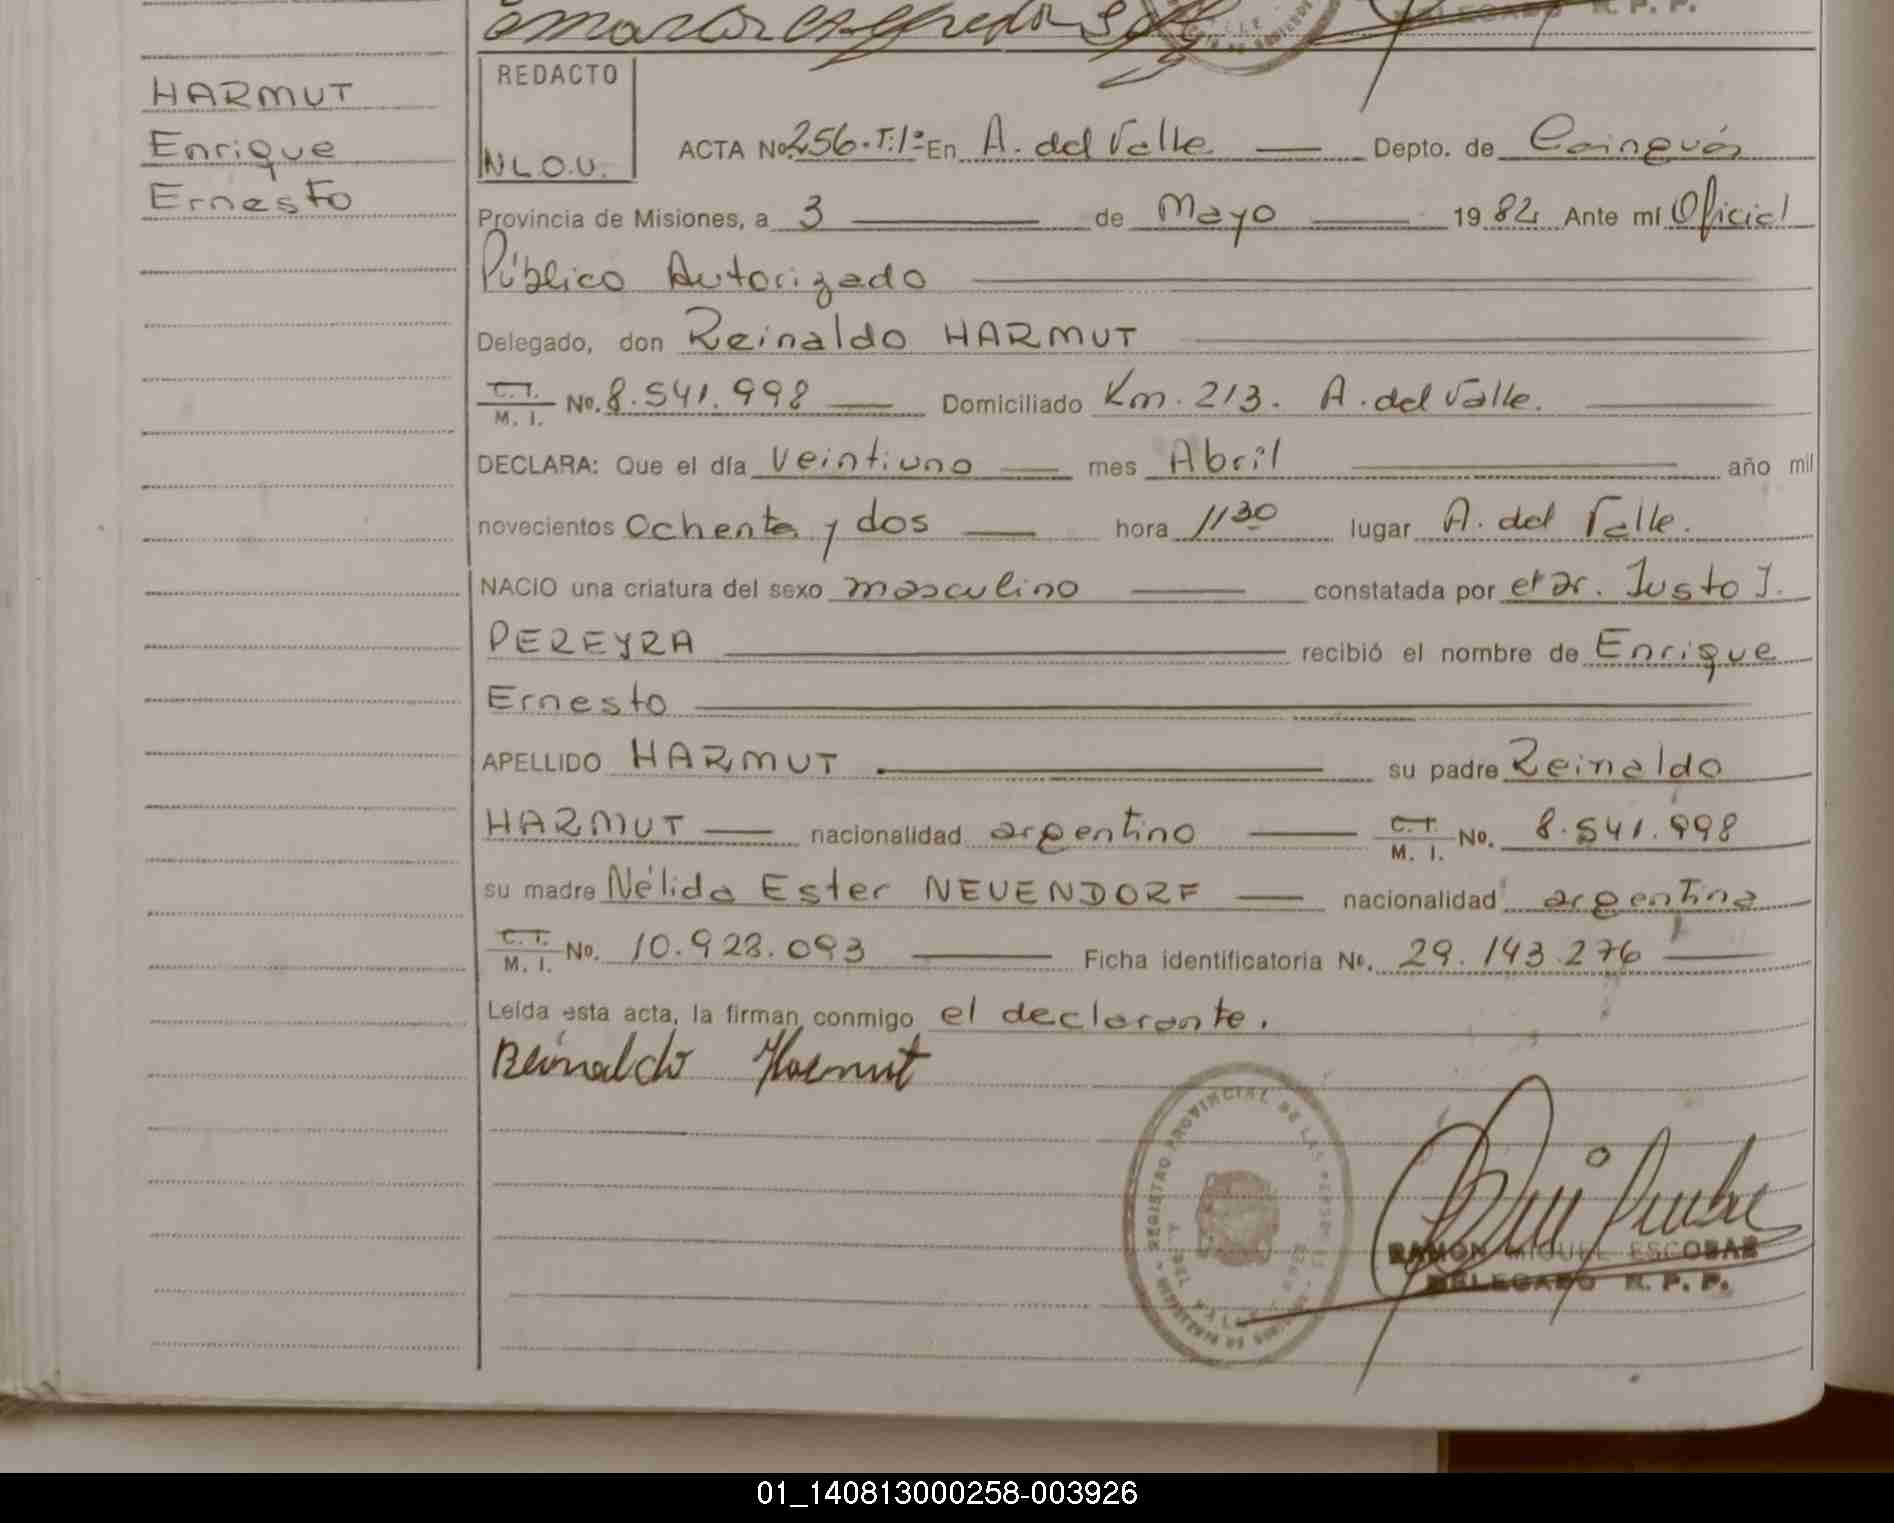 HARMUT
Enrique
Ernesto
REDACTO
N.L.O.U.
ACTA Nº 256.T.1º En A. del Valle Depto. de Cainguás
Provincia de Misiones, a 3 de Mayo 1982 Ante mí Oficial
Público Autorizado
Delegado, don Reinaldo HARMUT
C.I. M. I. Nº. 8.541.998 Domiciliado Km. 213. A. del Valle.
DECLARA: Que el día veintiuno mes Abril año mil
novecientos Ochenta y dos hora 11 30 lugar A. del Valle.
NACIO una criatura del sexo masculino constatada por el Dr. Justo J.
PEREYRA recibió el nombre de Enrique
Ernesto
APELLIDO HARMUT su padre Reinaldo
HARMUT nacionalidad argentino C.I. M. I. Nº. 8.541.998
su madre Nélida Ester NEUENDORF nacionalidad argentina
C.I. M. I. Nº. 10.928.093 Ficha identificatoria Nº. 29.143.276
Leída ésta acta, la firman conmigo el declarante.
Reinaldo Harmut
REGISTRO PROVINCIAL DE LAS PERSONAS
RAMON MIGUEL ESCOBAR
DELEGADO R. P. P.
01_140813000258-003926